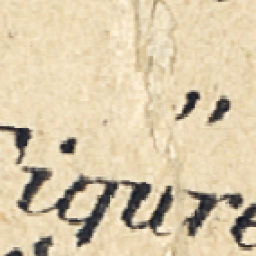 "
Figure